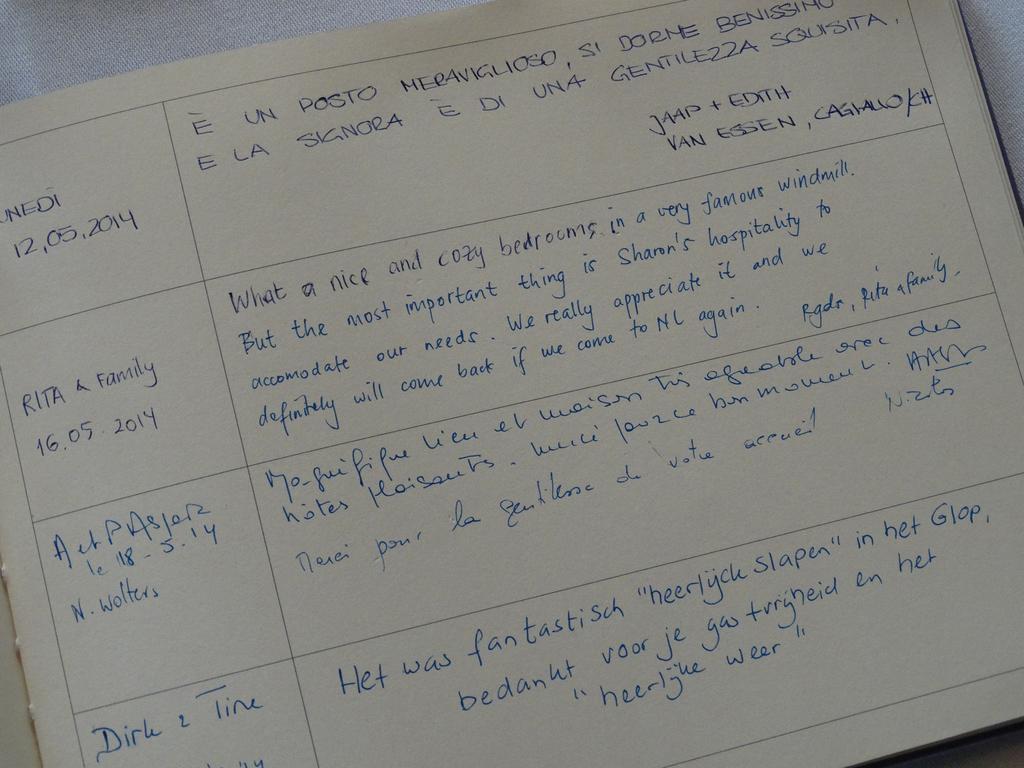 È UN POSTO MERAVIGLIOSO, SI DORME BENISSIMO
E LA SIGNORA È DI UNA GENTILEZZA SQUISITA,
JAAP + EDITH
VAN ESSEN, CAGIALLO/CH
UNEDÌ
12,05,2014
What a nice and cozy bedrooms in a very famous windmill.
But the most important thing is Sharon's hospitality to
accomodate our needs. We really appreciate it and we
definitely will come back if we come to NL again. Rgds, Rita & family.
RITA & Family
16.05.2014
Magnifique lieu et maison très agréable avec des
hôtes plaisants. Merci pour ce bon moment.
Merci pour la gentillesse de votre accueil
A et P
le 18-5.14
N. Wolters
Het was fantastisch "heerlijck slapen" in het Glop,
bedankt voor je gastvrijheid en het
"heerlijke weer"
Dirk & Tine